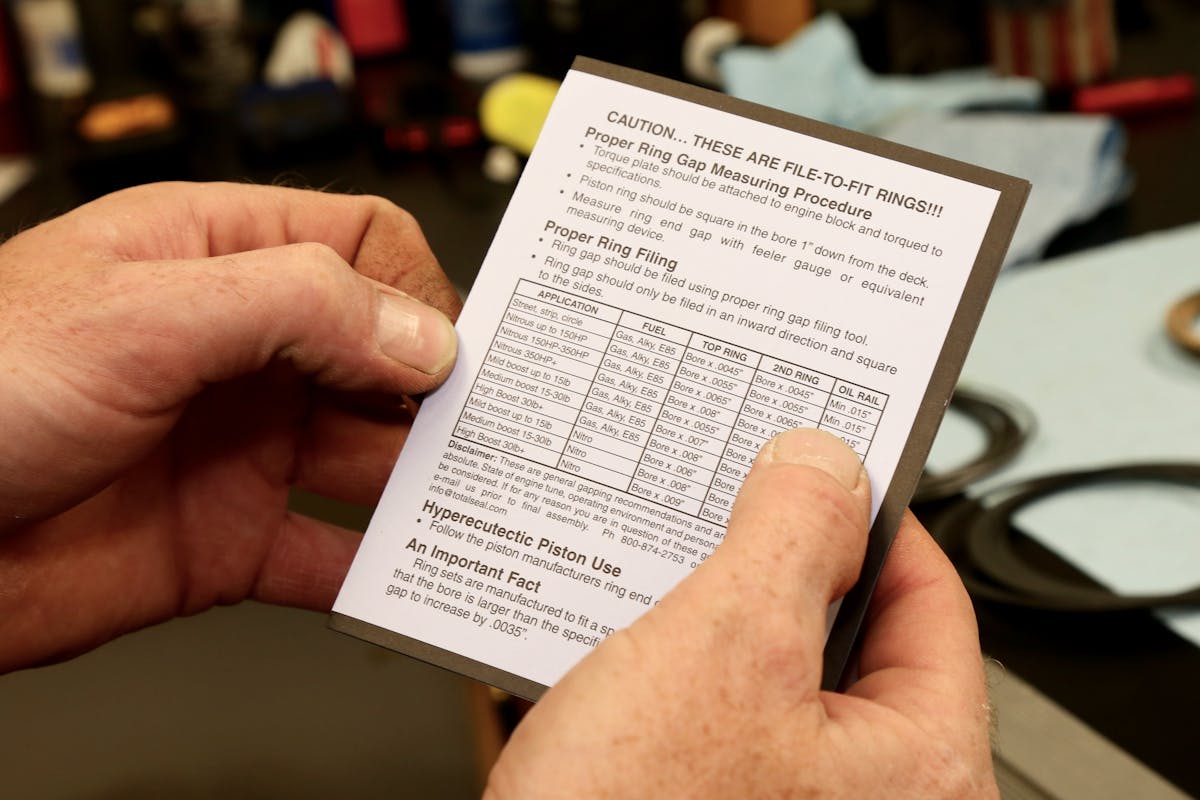 CAUTION... THESE ARE FILE-TO-FIT RINGS!!!
Proper Ring Gap Measuring Procedure
• Torque plate should be attached to engine block and torqued to
specifications.
• Piston ring should be square in the bore 1" down from the deck.
• Measure ring end gap with feeler gauge or equivalent
measuring device.
Proper Ring Filing
• Ring gap should be filed using proper ring gap filing tool.
• Ring gap should only be filed in an inward direction and square
to the sides.
APPLICATION FUEL TOP RING 2ND RING OIL RAIL
Street, strip, circle Gas, Alky, E85 Bore x .0045" Bore x .0045" Min .015"
Nitrous up to 150HP Gas, Alky, E85 Bore x .0055" Bore x .0055" Min .015"
Nitrous 150HP-350HP Gas, Alky, E85 Bore x .0065" Bore x .0065" .015"
Nitrous 350HP+ Gas, Alky, E85 Bore x .008" Bore x
Mild boost up to 15lb Gas, Alky, E85 Bore x .0055" Bore x
Medium boost 15-30lb Gas, Alky, E85 Bore x .007" Bore
High Boost 30lb+ Gas, Alky, E85 Bore x .008" Bore x
Mild boost up to 15lb Nitro Bore x .006" Bore
Medium boost 15-30lb Nitro Bore x .008" Bore
High Boost 30lb+ Nitro Bore x .009" Bore
Disclaimer: These are general gapping recommendations and
absolute. State of engine tune, operating environment and
be considered. If for any reason you are in question of these
e-mail us prior to final assembly. Ph 800-874-2753
info@totalseal.com
Hypereutectic Piston Use
• Follow the piston manufacturers ring end
An Important Fact
Ring sets are manufactured to fit a
that the bore is larger than the
gap to increase by .0035".